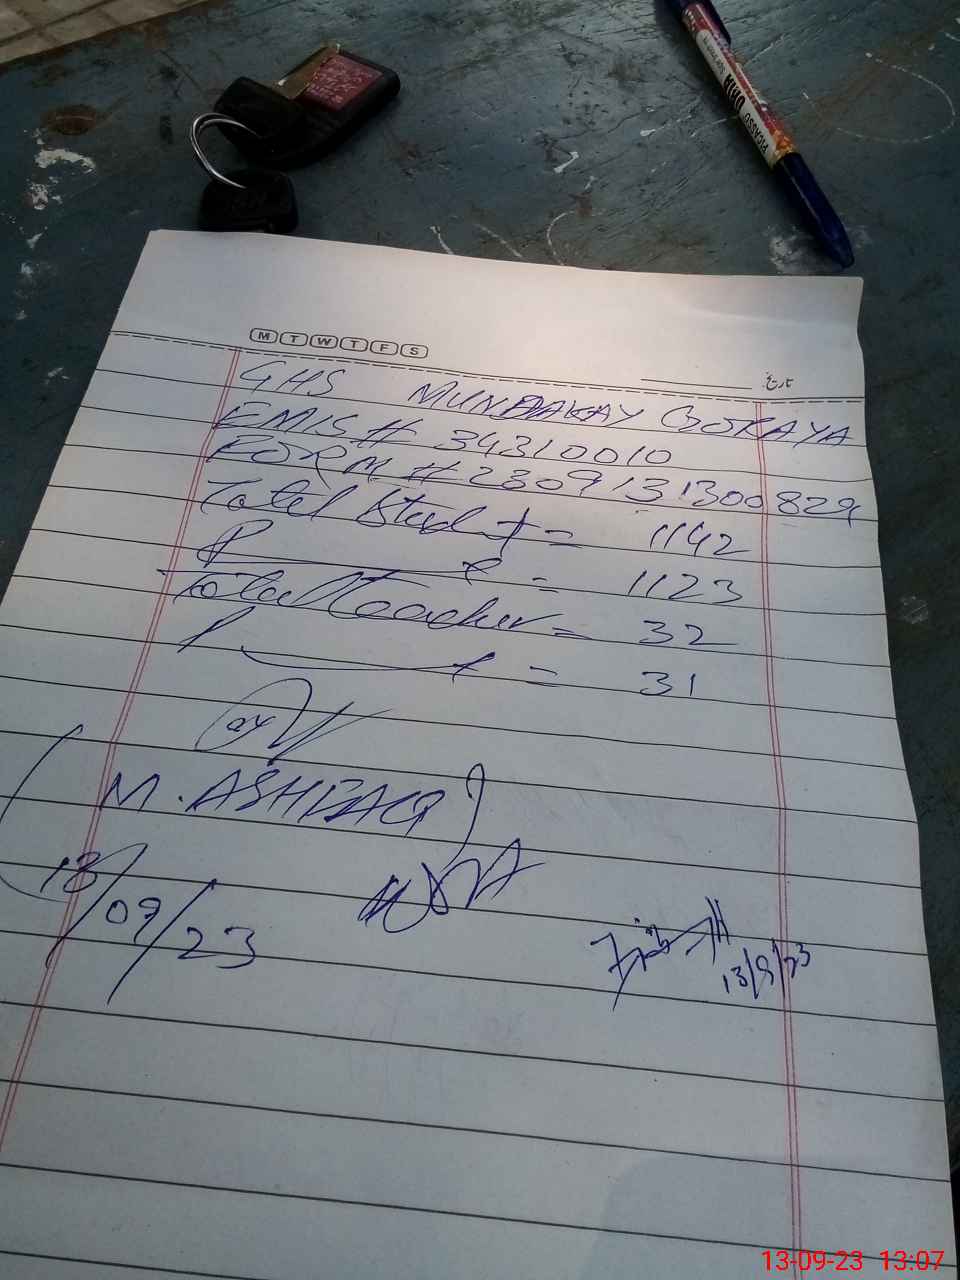 PICASSO DATA
M T W T F S
تاریخ
GHS MUNDAKAY GORAYA
EMIS # 34310010
FORM # 2309131300829
Total Student = 1142
P t = 1123
Total teacher = 32
P t = 31
(M. ASHFAQ)
13/09/23
13/9/23
13-09-23 13:07